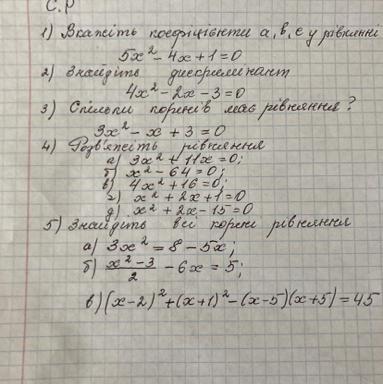 С.Р
1) Вкажіть коефіцієнти a, b, c у рівнянні
5x² - 4x + 1 = 0
2) Знайдіть дискримінант
4x² - 2x - 3 = 0
3) Скільки коренів має рівняння?
3x² - x + 3 = 0
4) Розв'яжіть рівняння
а) 3x² + 11x = 0;
б) x² - 64 = 0;
в) 4x² + 16 = 0;
г) x² + 2x + 1 = 0
д) x² + 2x - 15 = 0
5) Знайдіть всі корені рівняння
а) 3x² = 8 - 5x;
б) (x² - 3)/2 - 6x = 5;
в) (x-2)² + (x+1)² - (x-5)(x+5) = 45